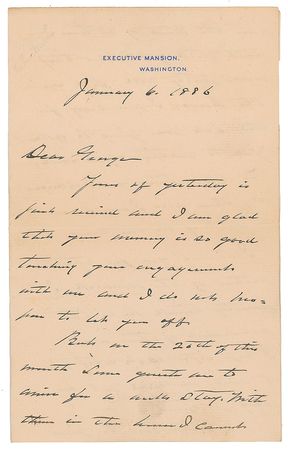 EXECUTIVE MANSION,
WASHINGTON
January 6. 1886
Dear George
Yours of yesterday is
just received and I am glad
that your memory is so good
touching your engagements
with me and I do not pro-
pose to let you off.
But on the 26th of this
month some guests are to
arrive for a weeks stay. With
them in the house I cannot